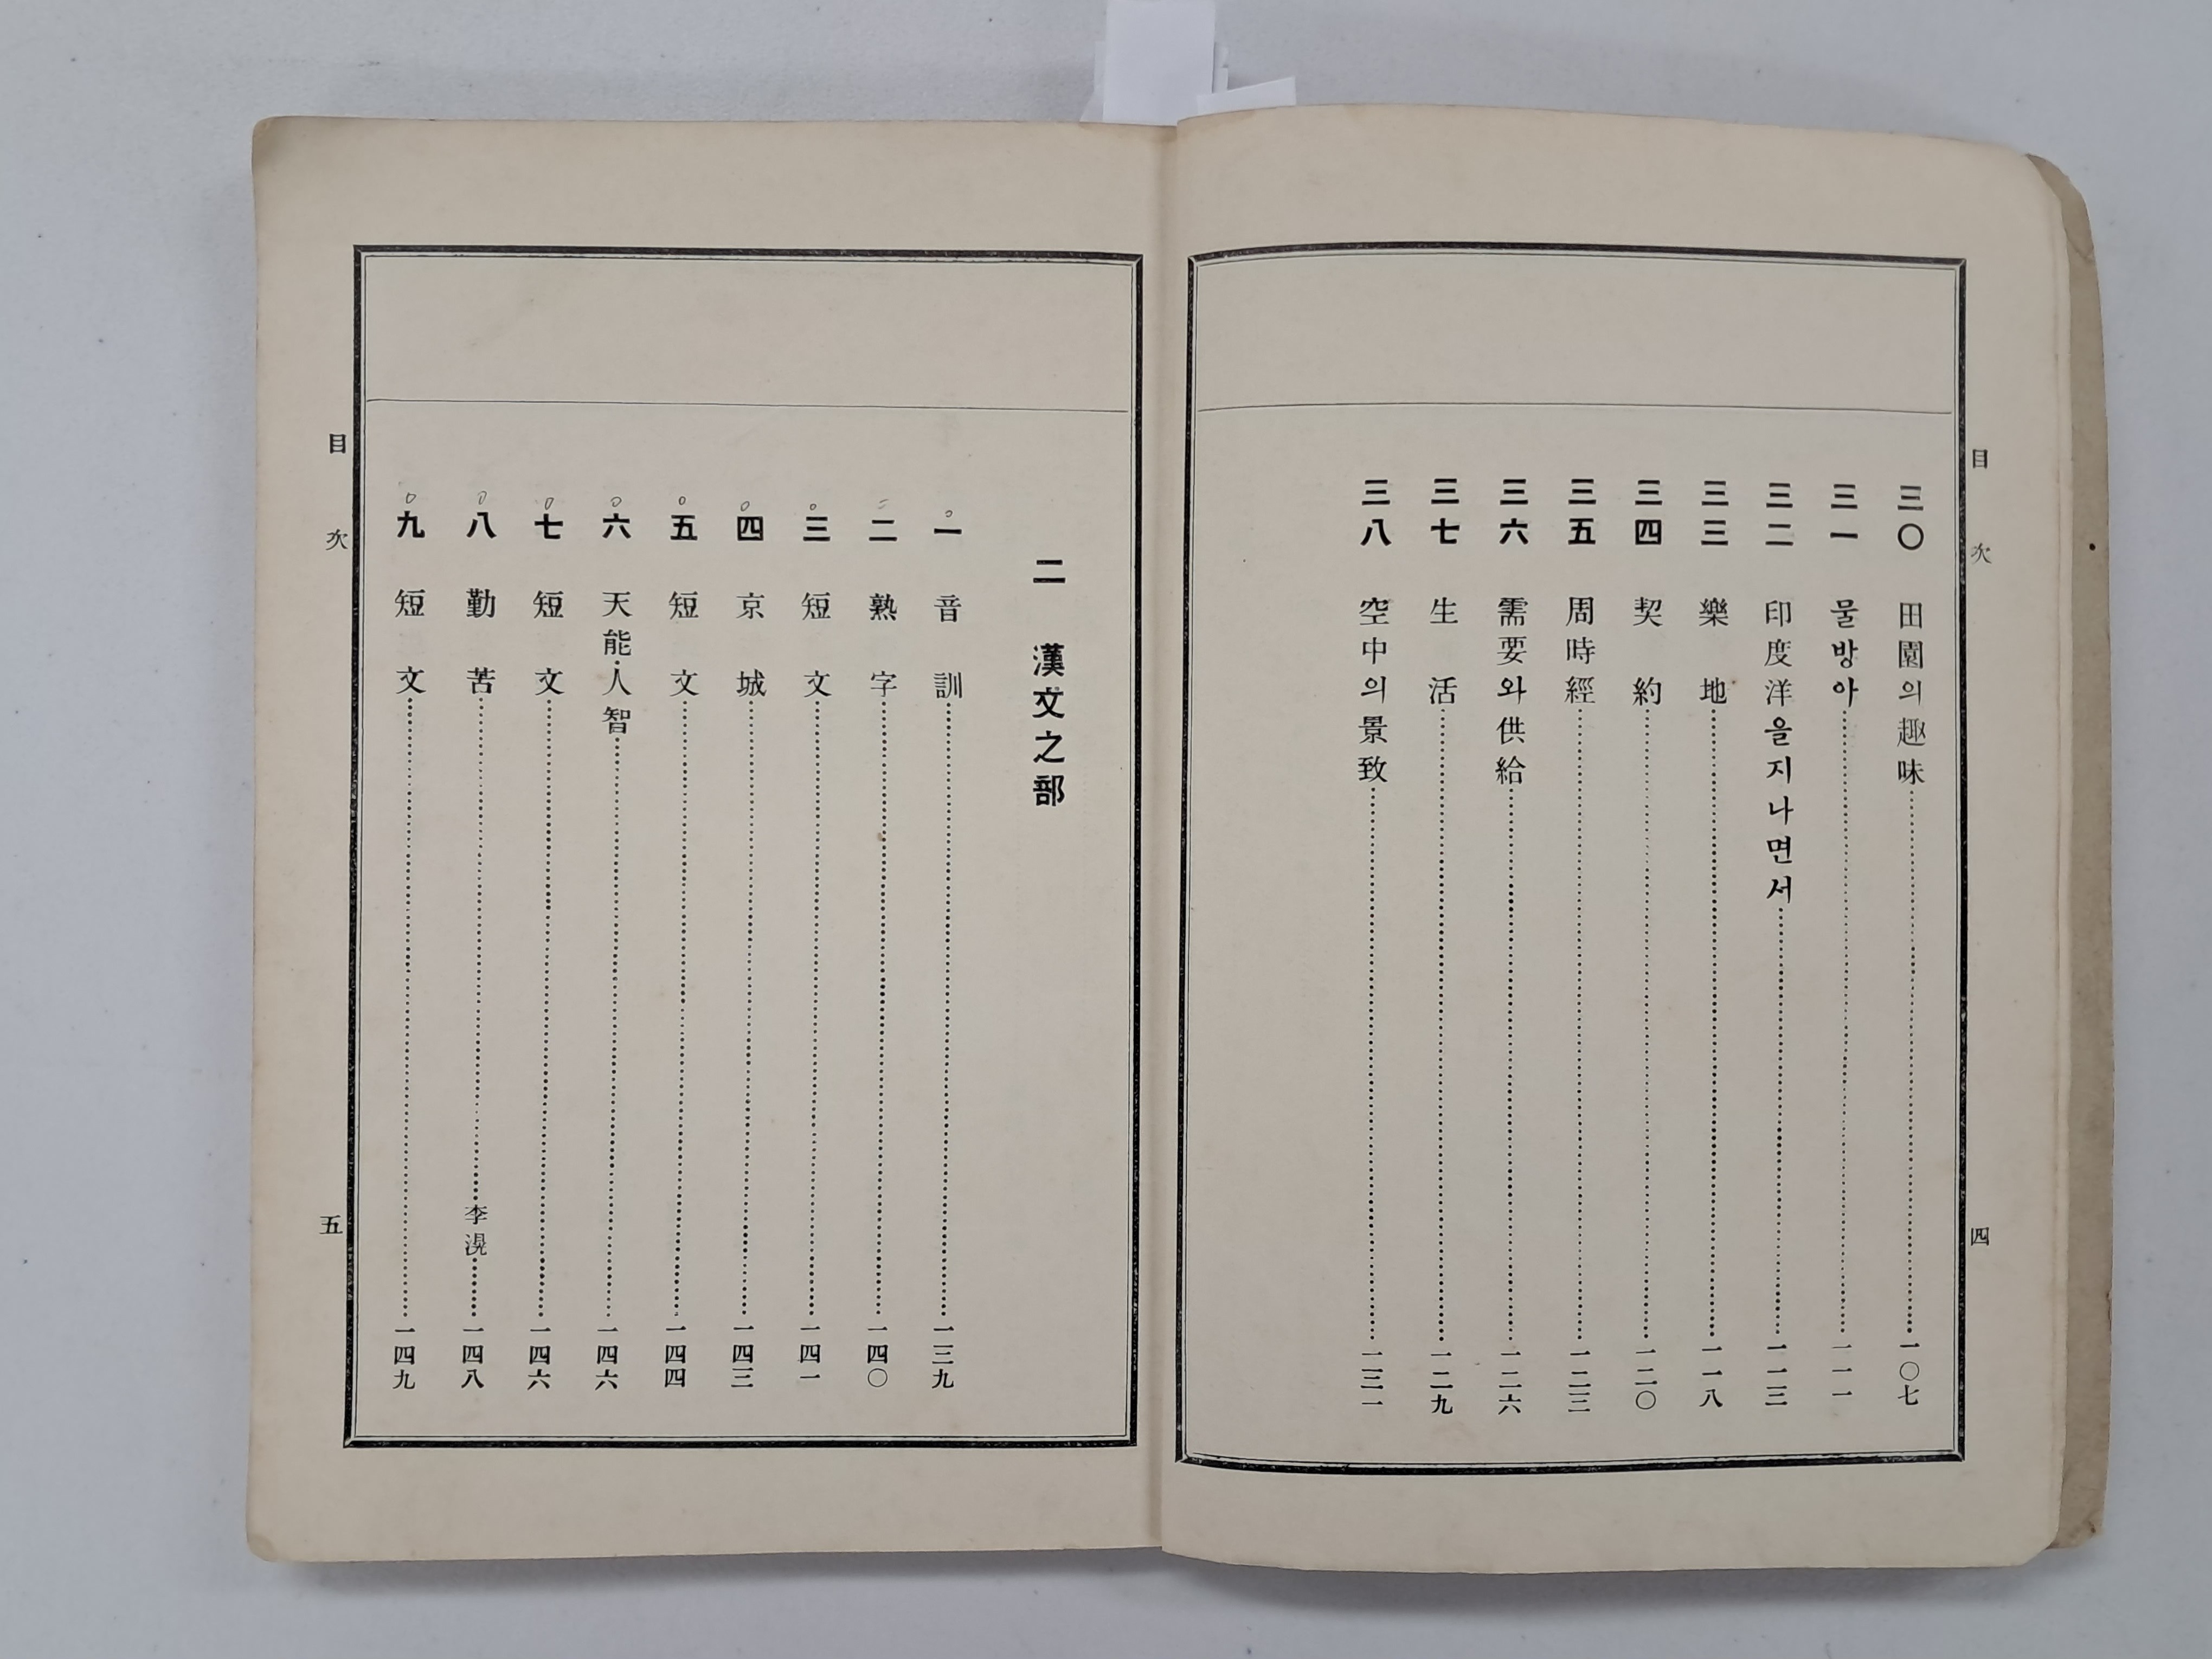 目次
三〇 田園의趣味……一〇七
三一 물방아……一一一
三二 印度洋을지나면서……一一三
三三 樂地……一一八
三四 契約……一二〇
三五 周時經……一二三
三六 需要와供給……一二六
三七 生活……一二九
三八 空中의景致……一三一
四
二 漢文之部
一 音訓……一三九
二 熟字……一四〇
三 短文……一四一
四 京城……一四三
五 短文……一四四
六 天能·人智……一四六
七 短文……一四六
八 勤苦……李滉……一四八
九 短文……一四九
目次
五